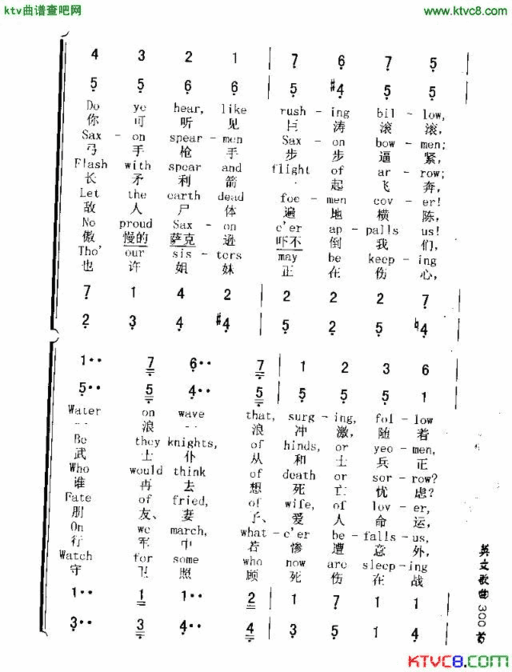 ktv曲谱查吧网
www.ktvc8.com
4 3 2 1 | 7 6 7 5
5 5 6 6 | 5 #4 5 5
Do ye hear, like rush-ing bil-low,
你 可 听 见 巨 涛 滚 滚,
Sax-on spear-men Sax-on bow-men;
弓 手 枪 手 步 步 逼 紧,
Flash with spear and flight of ar-row;
长 矛 利 箭 起 飞 奔,
Let the earth dead foe-men cov-er!
敌 人 尸 体 遍 地 横 陈,
No proud Sax-on e'er ap-palls us!
傲 慢的 萨克 逊 吓不 倒 我 们,
Tho' our sis-ters may be keep-ing
也 许 姐 妹 正 在 伤 心,
7 1 4 2 | 2 2 2 7
2 3 4 #4 | 5 2 5 ♮4
1·· 7 6·· 7 | 1 2 3 6
5·· 5 4·· 5 | 5 5 5 1
Water on wave that, surg-ing, fol-low
-- 浪 -- 浪 冲 激, 随 着
Be they knights, of hinds, or yeo-men,
武 士 仆 从 和 士 兵 正
Who would think of death or sor-row?
谁 再 去 想 死 亡 忧 虑?
Fate of fried, of wife, of lov-er,
朋 友、 妻 子、 爱 人 命 运,
On we march, what-e'er be-falls us,
行 军 中 若 惨 遭 意 外,
Watch for some who now are sleep-ing
守 卫 照 顾 死 伤 在 战
1·· 1 1·· 2 | 1 7 1 1
3·· 4 4·· 4 | 3 5 1 4
英文歌曲300首
KTVC8.com